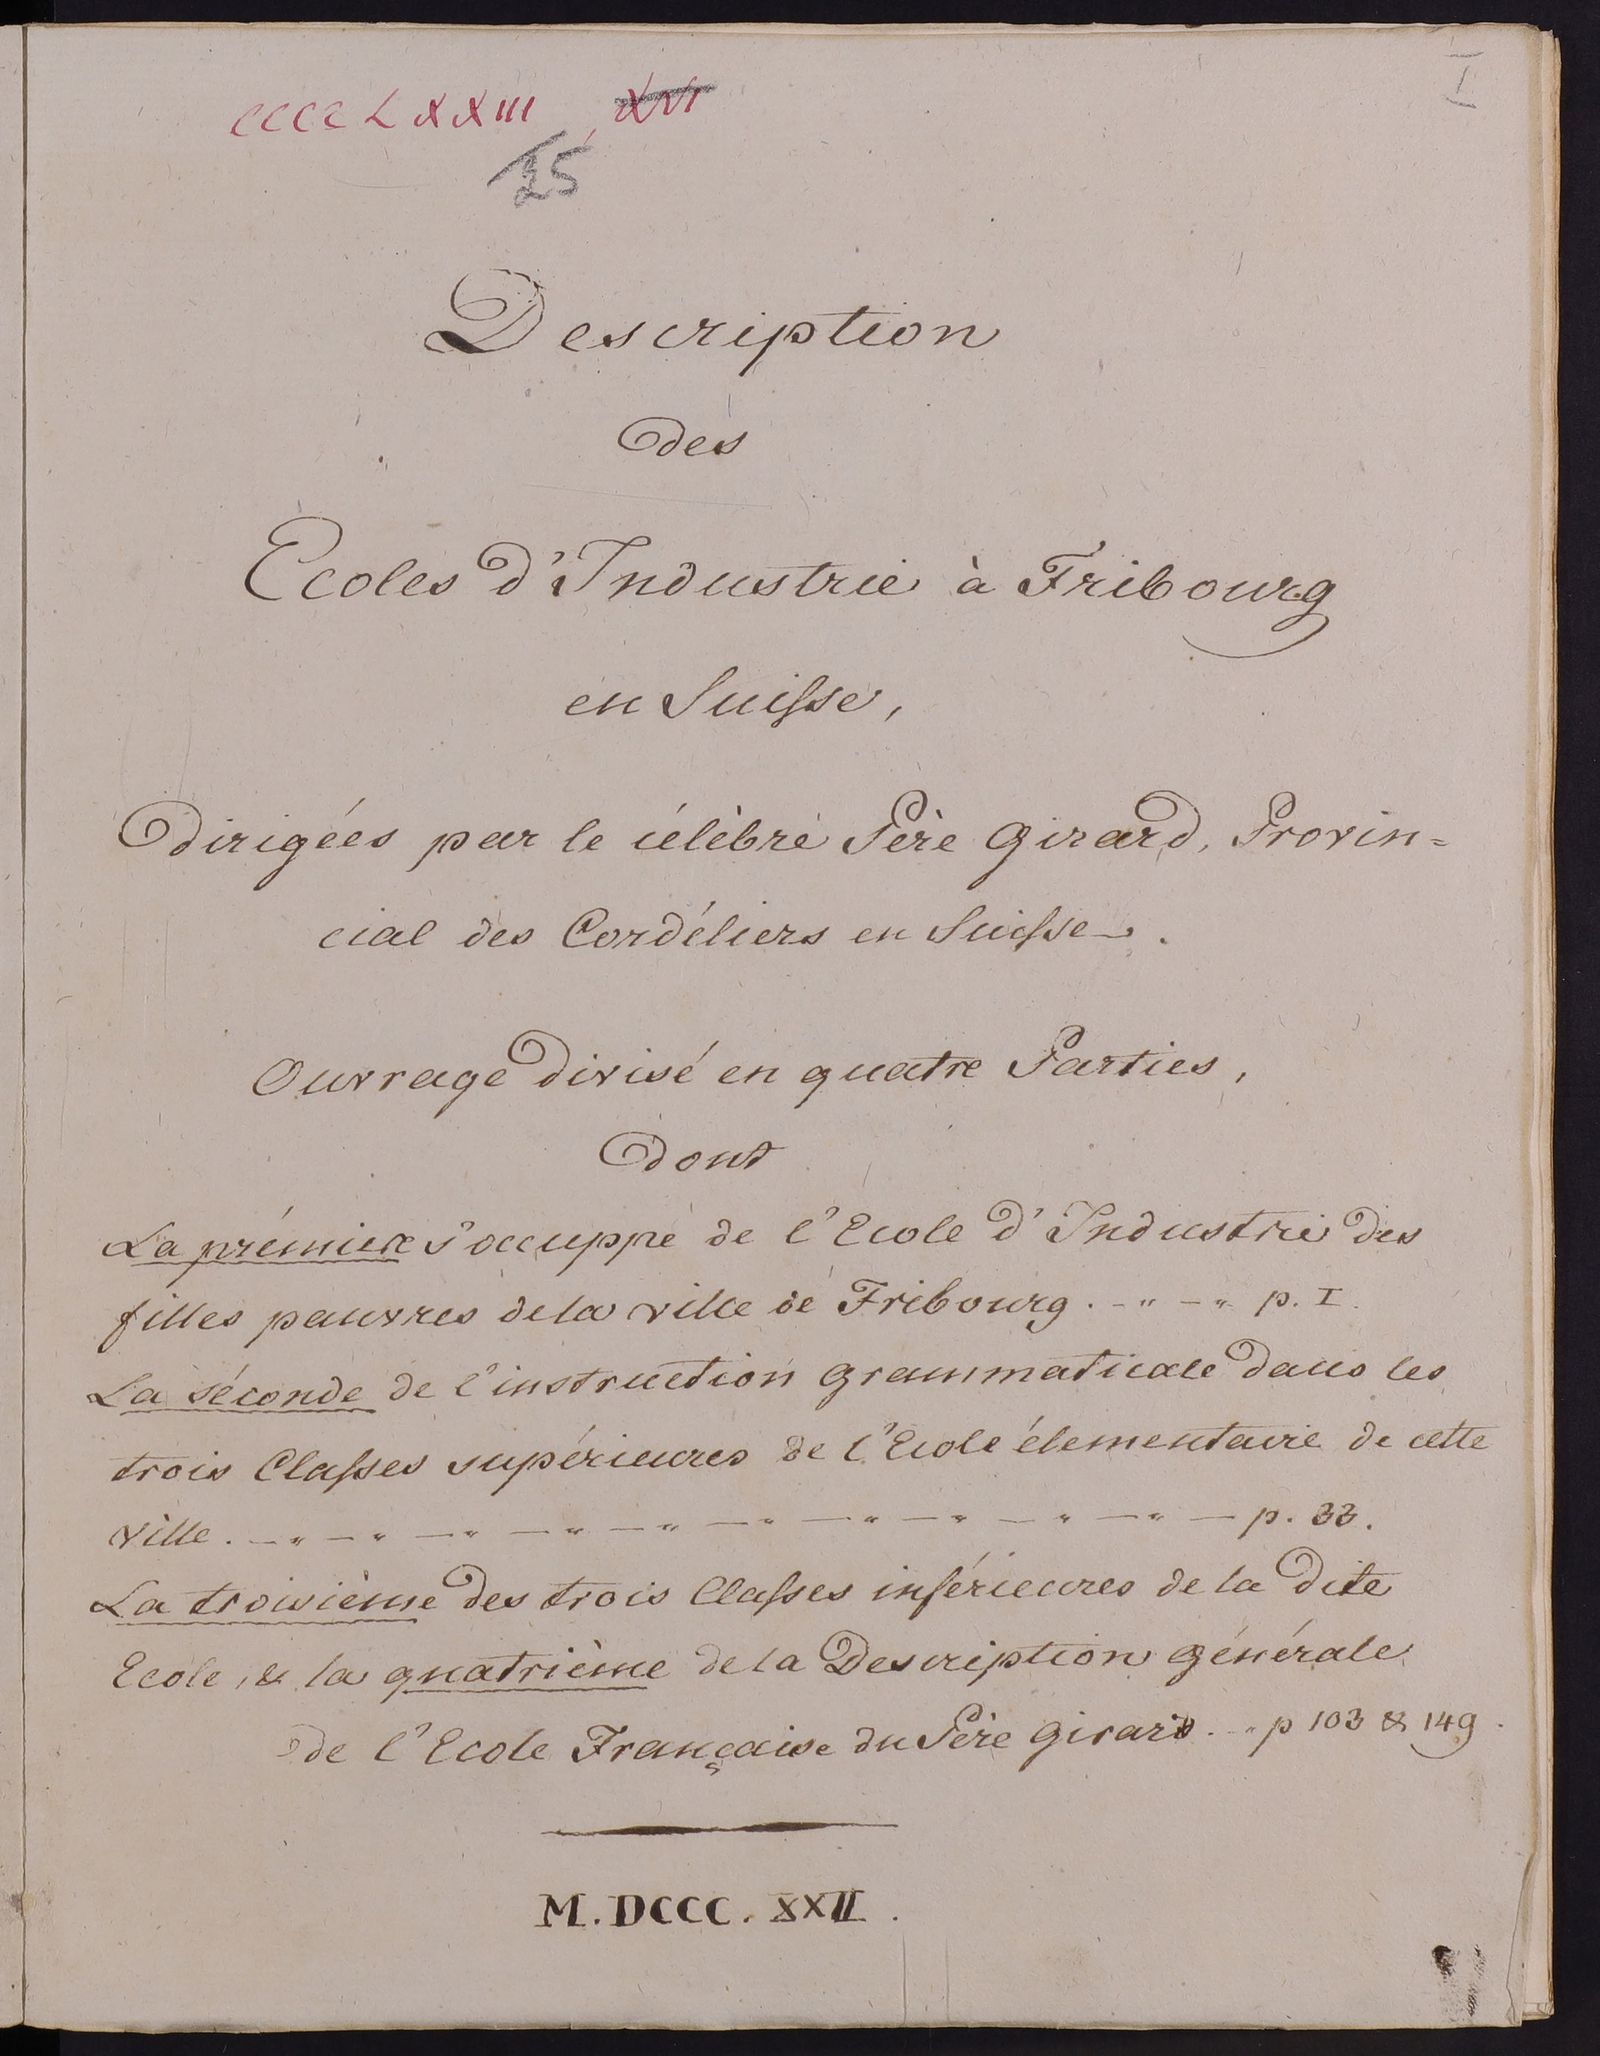 I
CCCCLXXIII, XVI
25
Description
des
Ecoles d'Industrie à Fribourg
en Suisse,
dirigées par le célèbre Père Girard, Provin=
cial des Cordéliers en Suisse.
Ouvrage divisé en quatre Parties,
dont
La prémiere s'occuppe de l'Ecole d'Industrie des
filles pauvres de la ville de Fribourg. - " - " p. I.
La séconde de l'instruction grammaticale dans les
trois Classes supérieures de l'Ecole élementaire de cette
ville. - " - " - " - " - " - " - " - " - " - " - p. 33.
La troisième des trois Classes inférieures de la dite
Ecole, & la quatrième de la Description générale
de l'Ecole Française du Père Girard. - " p 103 & 149.
M.DCCC.XXII.